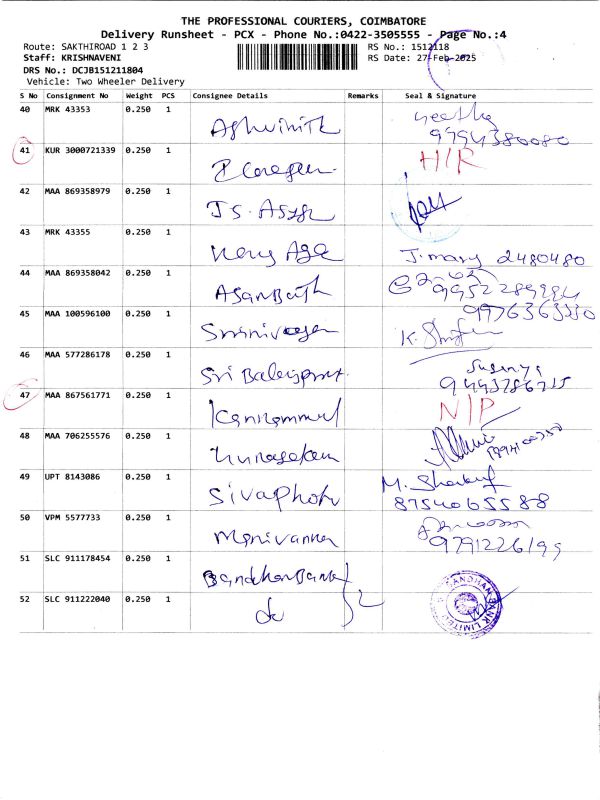 THE PROFESSIONAL COURIERS, COIMBATORE
Delivery Runsheet - PCX - Phone No.:0422-3505555 - Page No.:4
Route: SAKTHIROAD 1 2 3 RS No.: 1512118
Staff: KRISHNAVENI RS Date: 27-Feb-2025
DRS No.: DCJB151211804
Vehicle: Two Wheeler Delivery
S No Consignment No Weight PCS Consignee Details Remarks Seal & Signature
40 MRK 43353 0.250 1 Ashvinith Geetha
9994380080
41 KUR 3000721339 0.250 1 H/R
42 MAA 869358979 0.250 1 TS.
43 MRK 43355 0.250 1 J. mary 2480480
44 MAA 869358042 0.250 1
45 MAA 100596100 0.250 1 Srinivasan 9976363330
46 MAA 577286178 0.250 1 Sri
47 MAA 867561771 0.250 1 N/P
48 MAA 706255576 0.250 1
49 UPT 8143086 0.250 1 M.
8754065588
50 VPM 5577733 0.250 1 Manivannan
9791226199
51 SLC 911178454 0.250 1 Bandhan Bank
52 SLC 911222040 0.250 1 do 2 BANDHAN BANK LIMITED